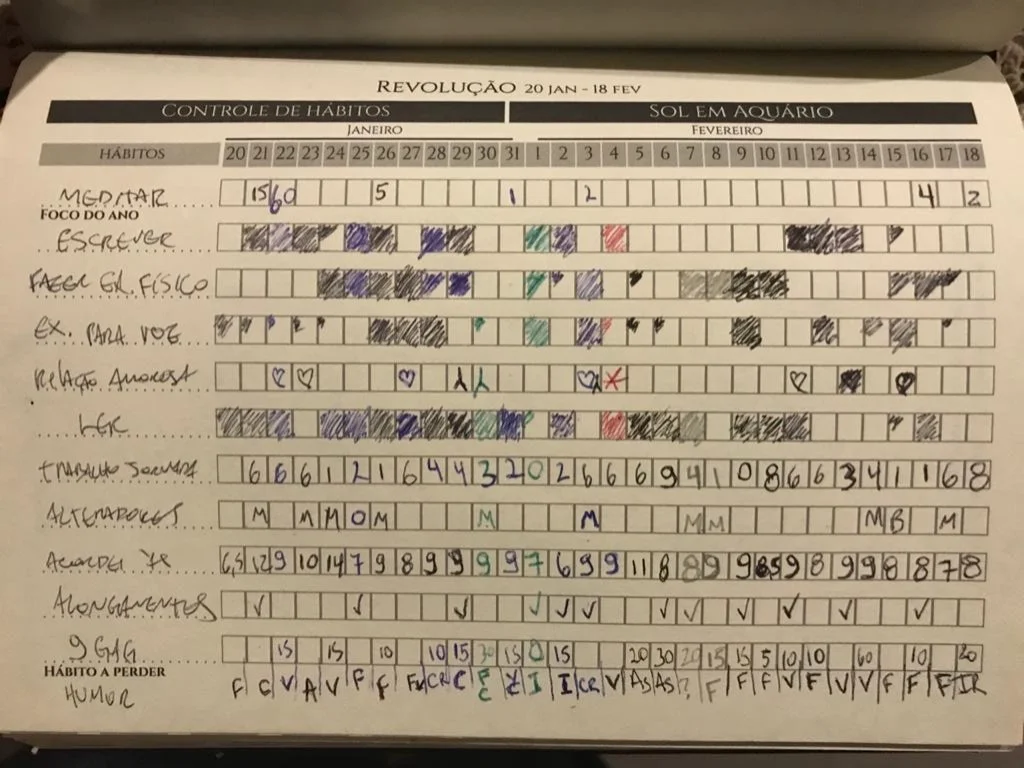 REVOLUÇÃO 20 JAN - 18 FEV
CONTROLE DE HÁBITOS SOL EM AQUÁRIO
JANEIRO FEVEREIRO
HÁBITOS 20 21 22 23 24 25 26 27 28 29 30 31 1 2 3 4 5 6 7 8 9 10 11 12 13 14 15 16 17 18
MEDITAR 15 60 5 1 2 4 2
FOCO DO ANO
ESCREVER
FAZER EX. FÍSICO
EX. PARA VOZ
RELAÇÃO AMOROSA
LER
TRABALHO JORNADA 6 6 6 1 2 1 6 4 4 3 2 0 2 6 6 6 9 4 1 0 8 6 6 3 4 1 1 6 8
ALTERADORES M M M O M M M M M M B M
ACORDEI 6,5 12 9 10 14 7 9 8 9 9 9 9 7 6 9 9 11 8 8 9 9 8,5 9 8 9 9 8 8 7 8
ALONGAMENTOS ✓ ✓ ✓ ✓ ✓ ✓ ✓ ✓ ✓ ✓ ✓ ✓
9GAG 15 15 10 10 15 30 15 0 15 20 30 20 15 15 5 10 10 60 10 20
HÁBITO A PERDER
HUMOR F C V A V F F CR C I I CR V AS AS ? F F F V F V V F F F IR